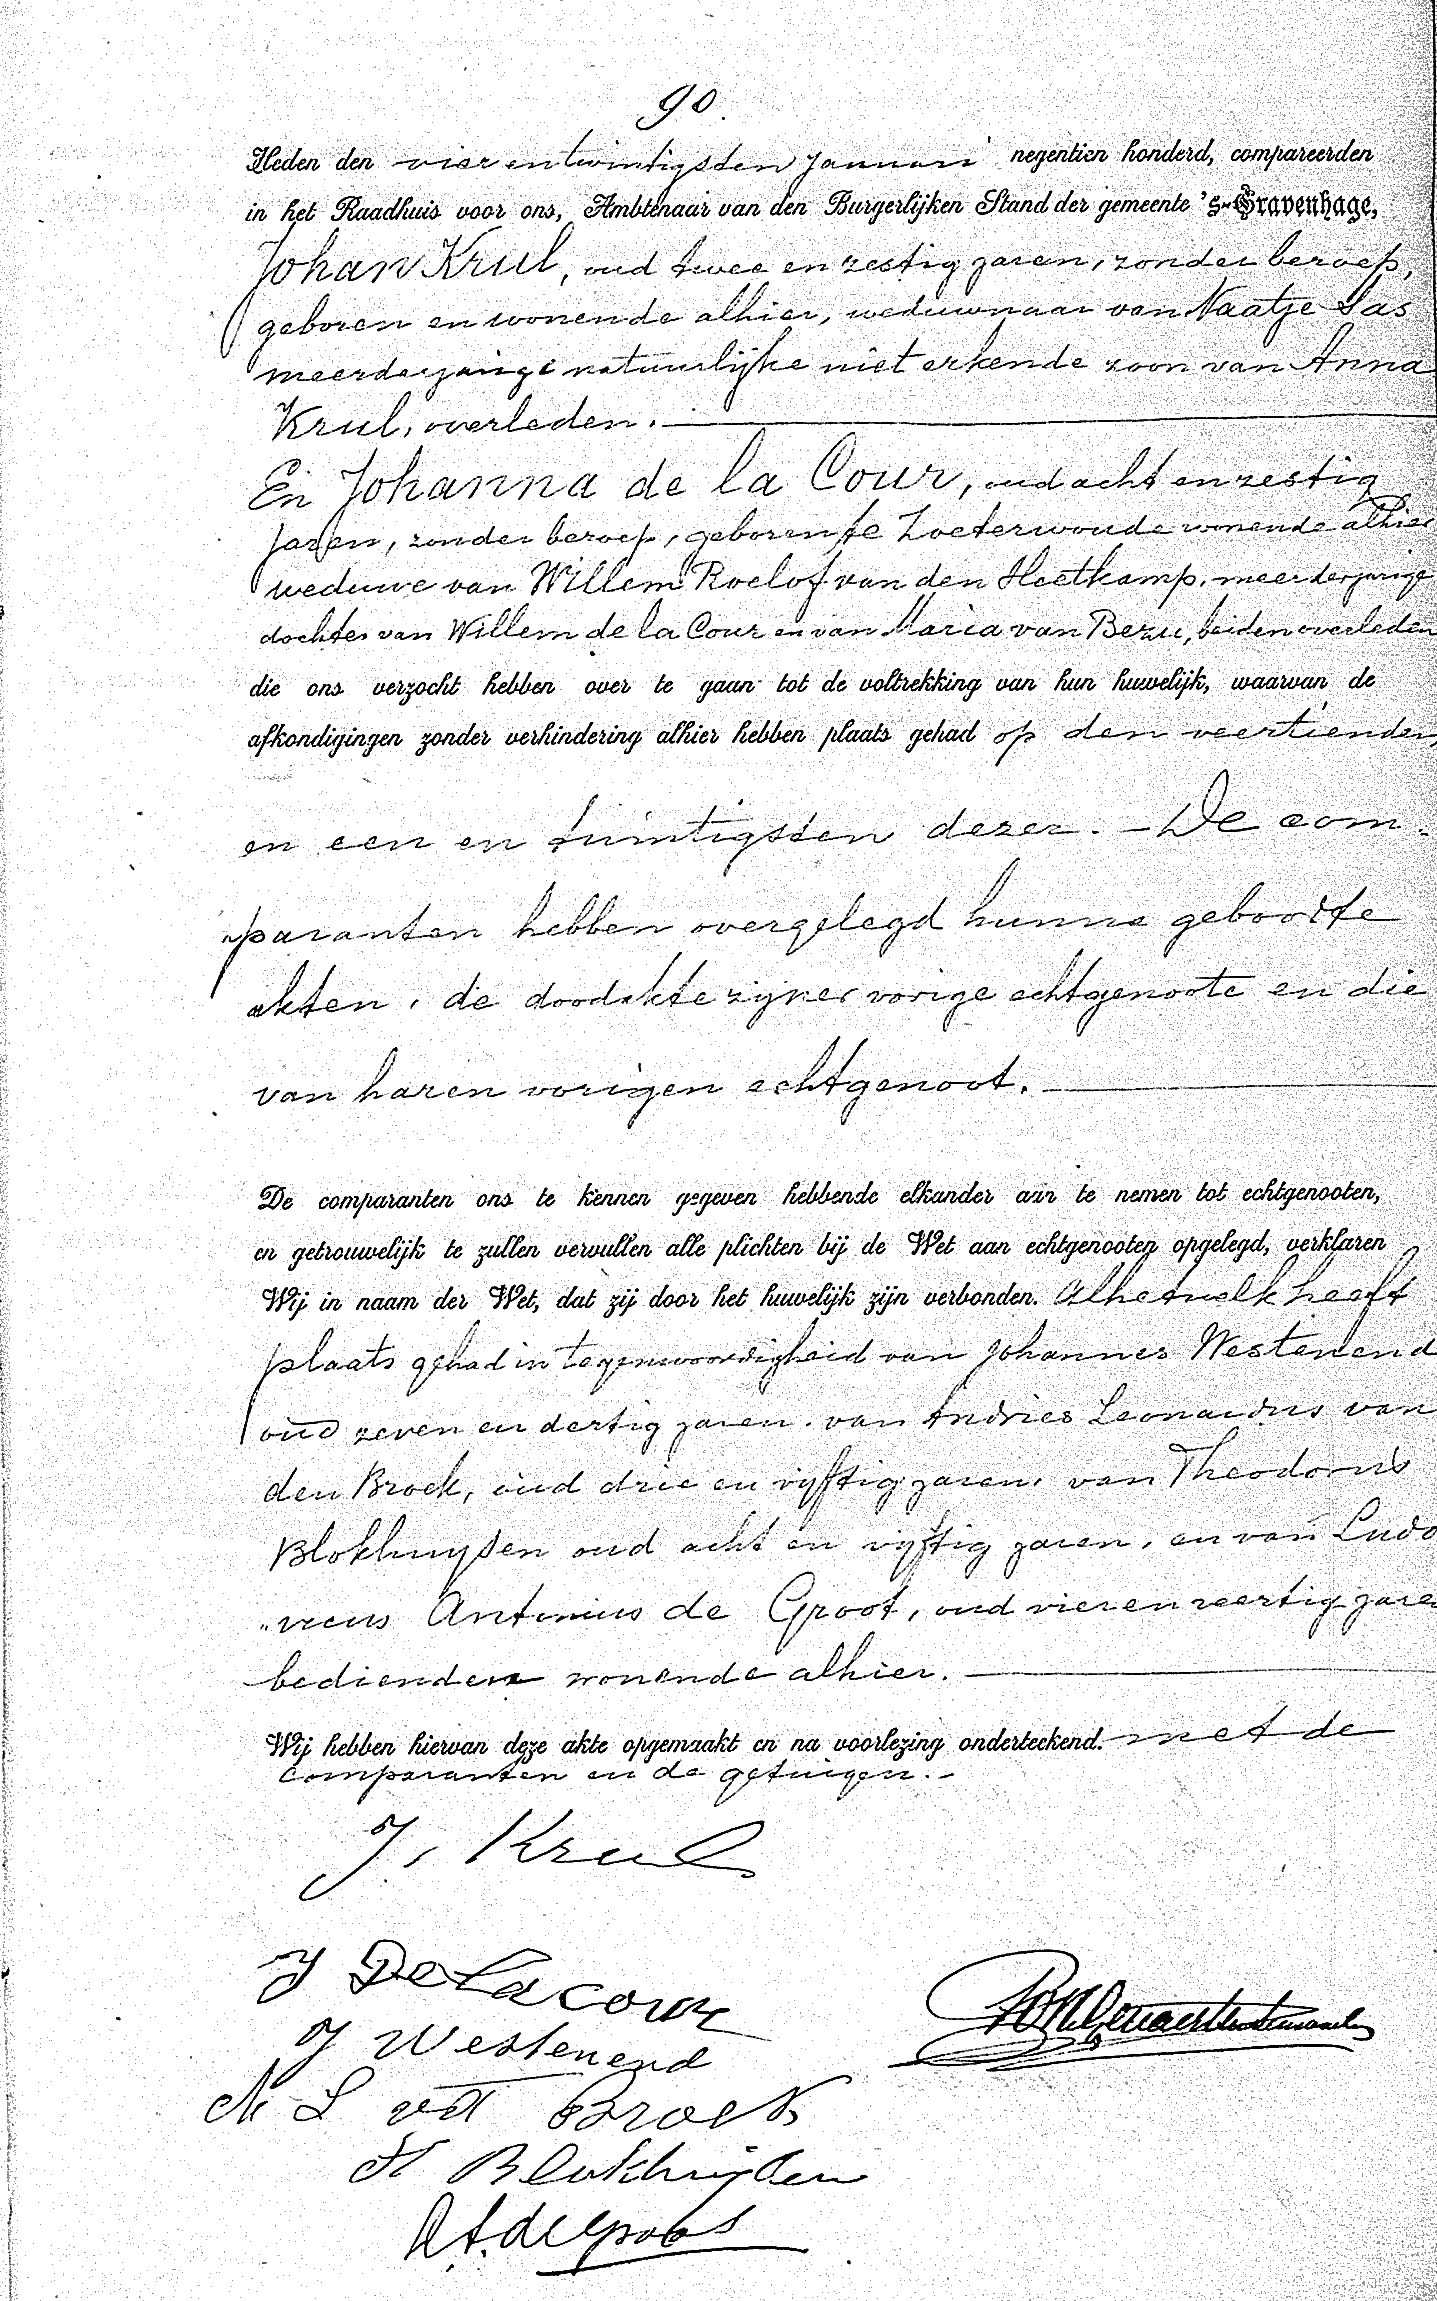 90.
Heden den vier en twintigsten Januari negentien honderd, compareerden
in het Raadhuis voor ons, Ambtenaar van den Burgerlijken Stand der gemeente 's-Gravenhage,
Johan Krul, oud twee en zestig jaren, zonder beroep,
geboren en wonende alhier, weduwnaar van Naatje Las
meerderjarige natuurlijke niet erkende zoon van Anna
Krul, overleden.
En Johanna de la Cour, oud acht en zestig
jaren, zonder beroep, geboren te Zoeterwoude wonende alhier
weduwe van Willem Roelof van den Heetkamp, meerderjarige
dochter van Willem de la Cour en van Maria van Bezu, beiden overleden
die ons verzocht hebben over te gaan tot de voltrekking van hun huwelijk, waarvan de
afkondigingen zonder verhindering alhier hebben plaats gehad op den veertienden
en een en twintigsten dezer. — De com-
"paranten hebben overgelegd hunne geboorte
akten, de doodakte zijner vorige echtgenoote en die
van haren vorigen echtgenoot.
De comparanten ons te kennen gegeven hebbende elkander aan te nemen tot echtgenooten,
en getrouwelijk te zullen vervullen alle plichten bij de Wet aan echtgenooten opgelegd, verklaren
Wij in naam der Wet, dat zij door het huwelijk zijn verbonden. Alhetwelk heeft
plaats gehad in tegenwoordigheid van Johannes Westenend
oud zeven en dertig jaren, van Andries Leonardus van
den Broek, oud drie en vijftig jaren, van Theodorus
Blokhuijsen oud acht en vijftig jaren, en van Ludo
"vicus Antonius de Groot, oud vier en veertig jaren
bedienden wonende alhier.
Wij hebben hiervan deze akte opgemaakt en na voorlezing onderteekend. met de
comparanten en de getuigen. —
J. Krul
J De La cour
J Westenend
A L vd Broek
Th Blokhuijsen
L A. de Groot